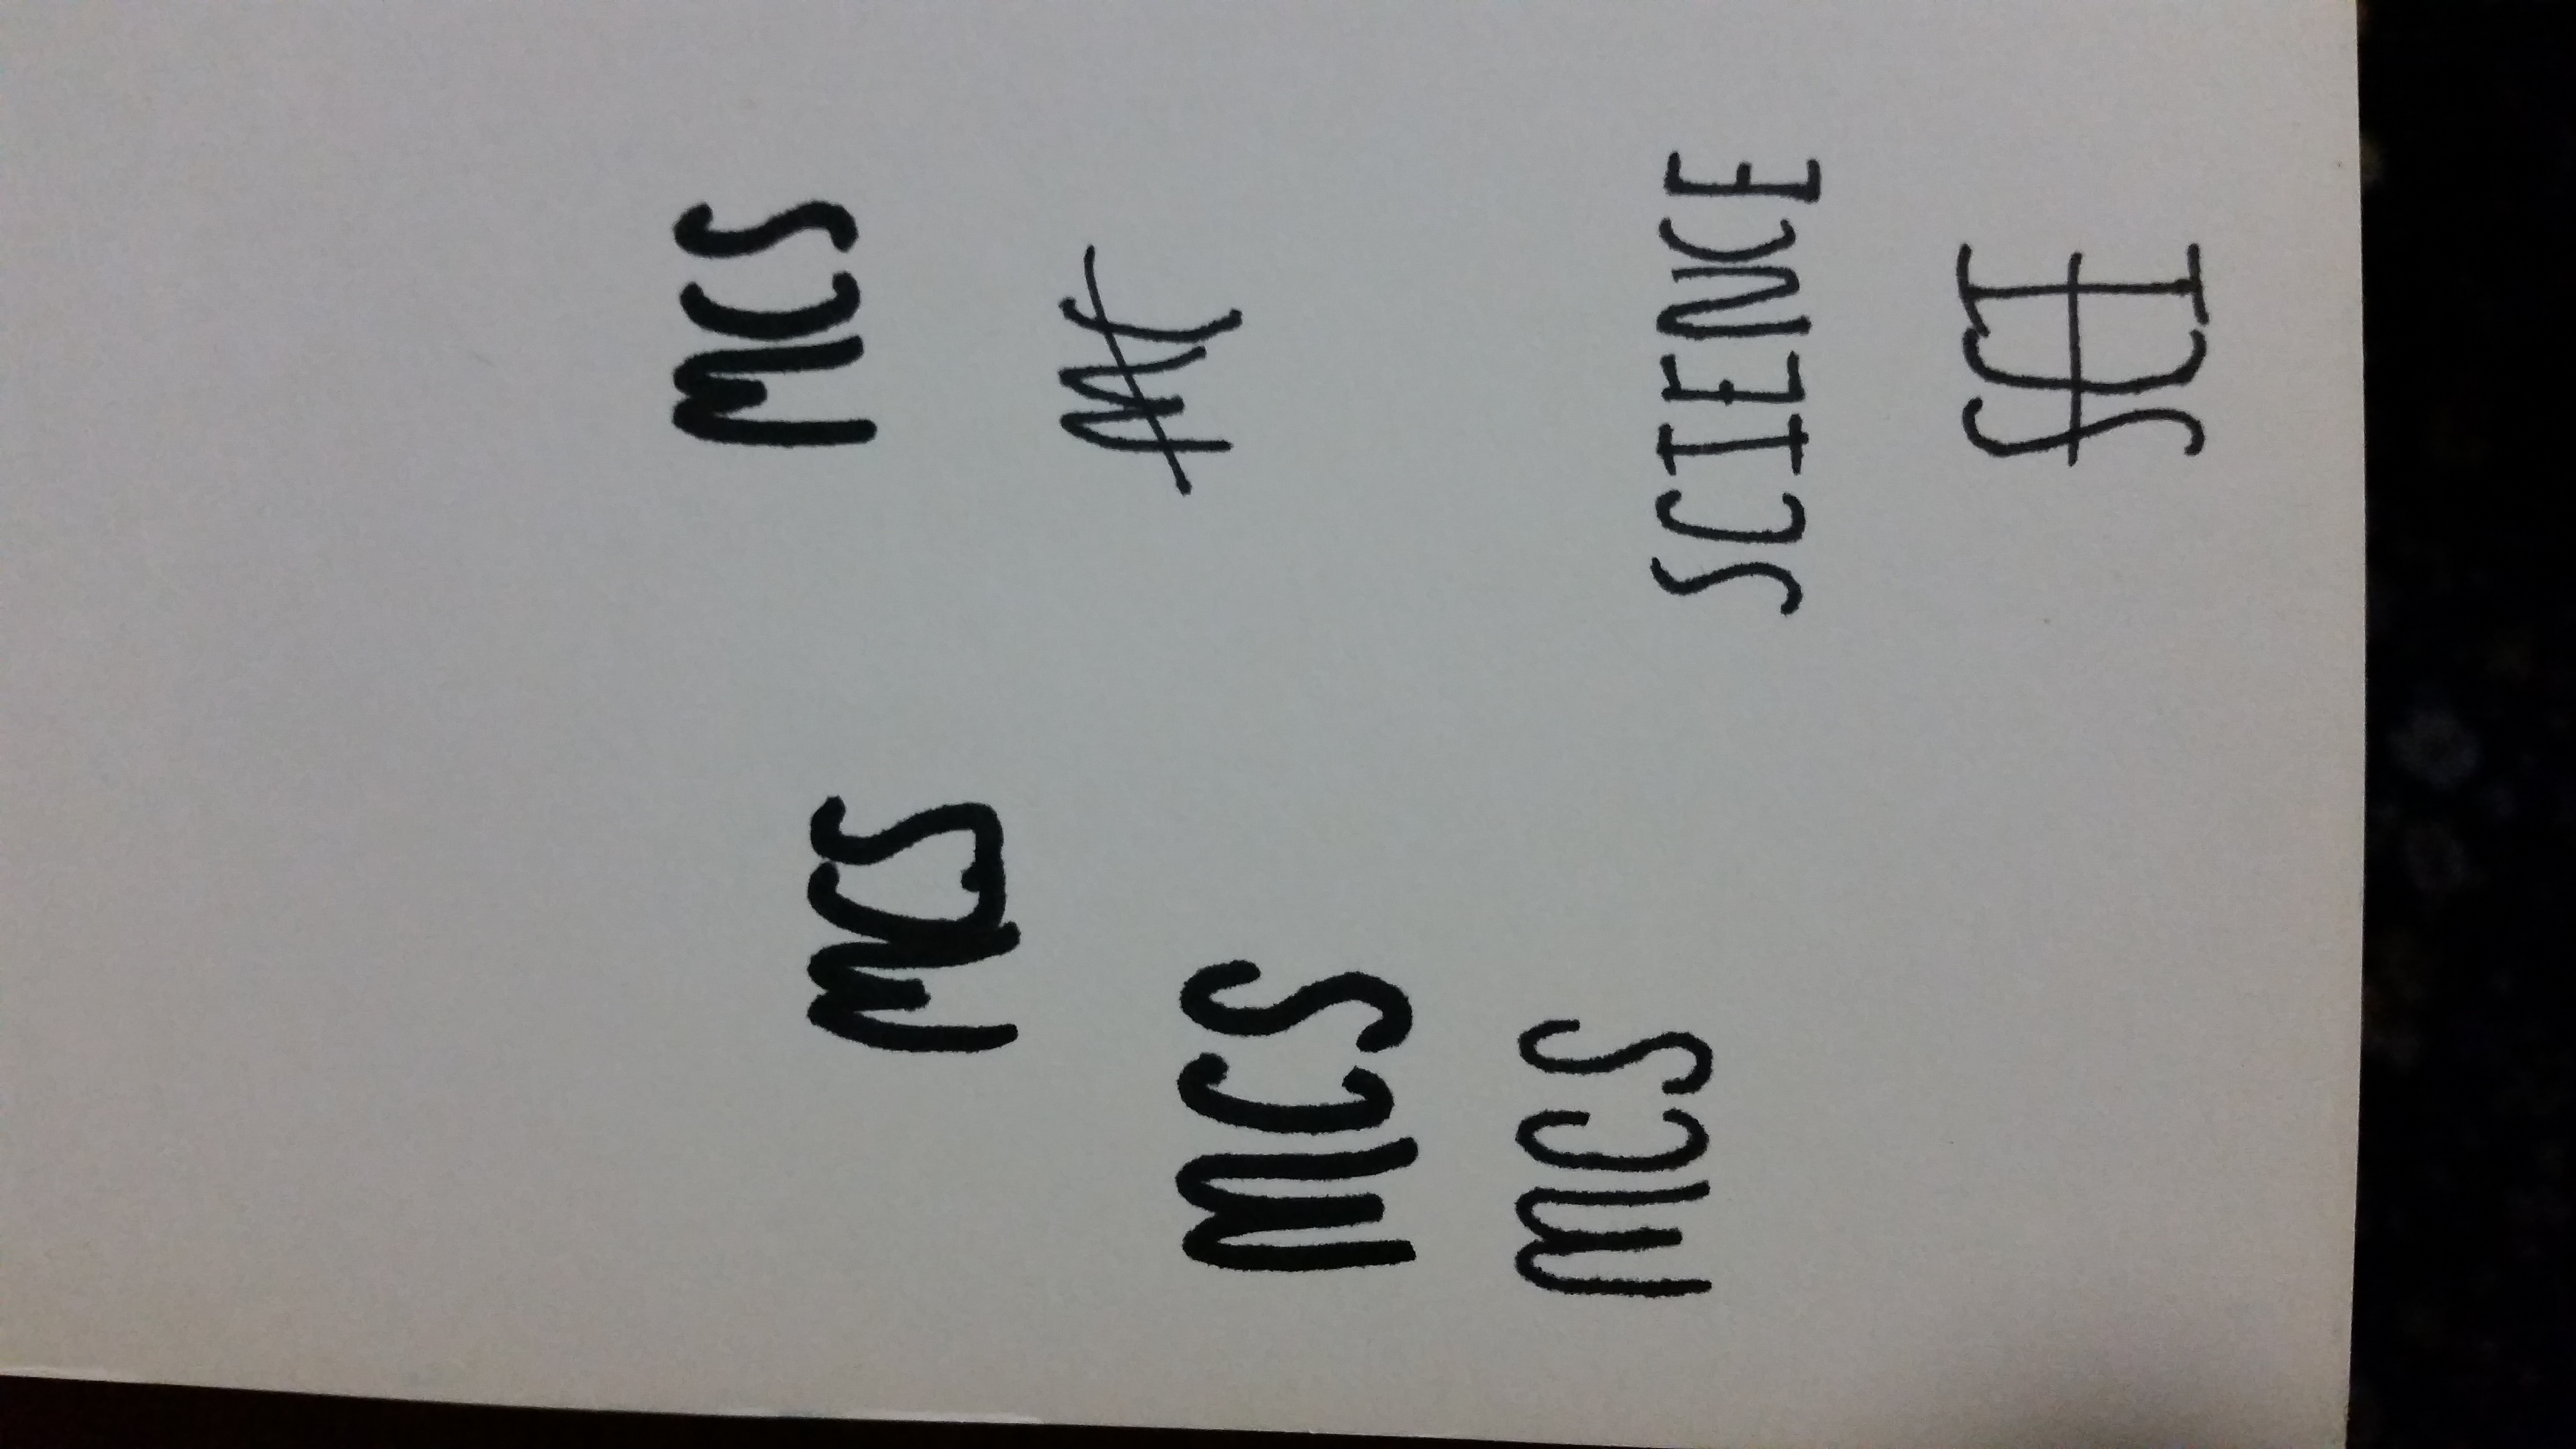 MCS
MCS
MC
MCS
MCS
SCIENCE
SCI